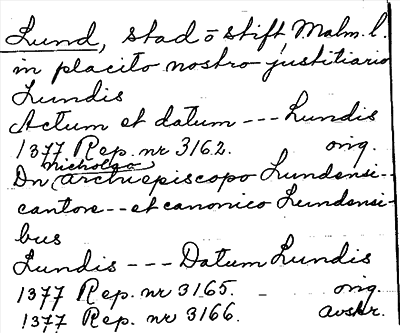 Lund, stad o stift, Malm. l.
in placito nostro justitiario
Lundis
Actum et datum --- Lundis
1377 Rep. nr 3162. orig.
Nicholao
Dn archiepiscopo Lundensi-
cantore -- et canonico Lundensi-
bus
Lundis --- Datum Lundis
1377 Rep. nr 3165. - orig.
1377 Rep. nr 3166. avskr.